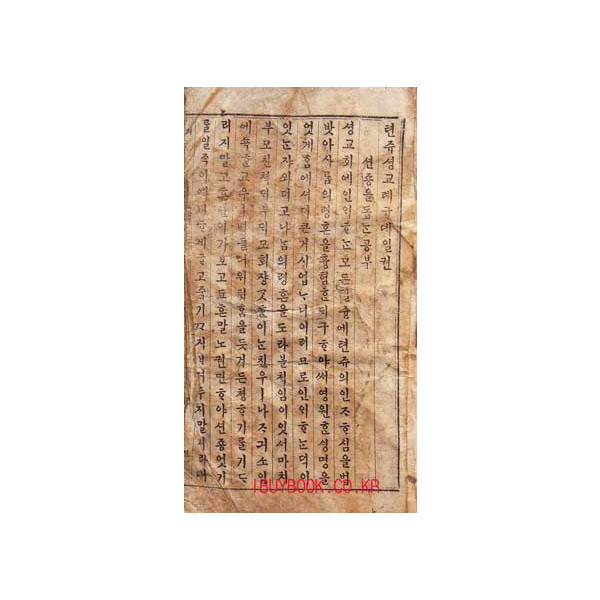 텬쥬셩교례규뎨일권
션죵을돕는공부
셩교회에인의ᄒᆞ는모든덕즁에텬쥬의인ᄌᆞᄒᆞ심을법
밧아사ᄅᆞᆷ의령혼을위험ᄒᆞᆫᄃᆡ구ᄒᆞ야써영원ᄒᆞᆫ셩명을
엇게ᄒᆞᆷ에셔더큰거시업ᄂᆞ니이러므로인의ᄒᆞ는덕이
잇는쟈와더고나ᄂᆞᆷ의령혼을도라볼ᄎᆡᆨ임이잇셔마치
부모친쳑과부회쟝ᄀᆞᆺᄒᆞᆫ이는친우ㅣ나ᄌᆞ긔소의
에속ᄒᆞᆫ교우ㅣ병드러위ᄒᆞᆷ을듯거든쳥ᄒᆞ기를기ᄃᆞ
리지말고가보고됴흔말노권면ᄒᆞ야션죵엇기
를일즉이예비ᄒᆞ게ᄒᆞ고죽기ᄭᆞ지ᄇᆞ려두지말지라
IBUYBOOK.CO.KR